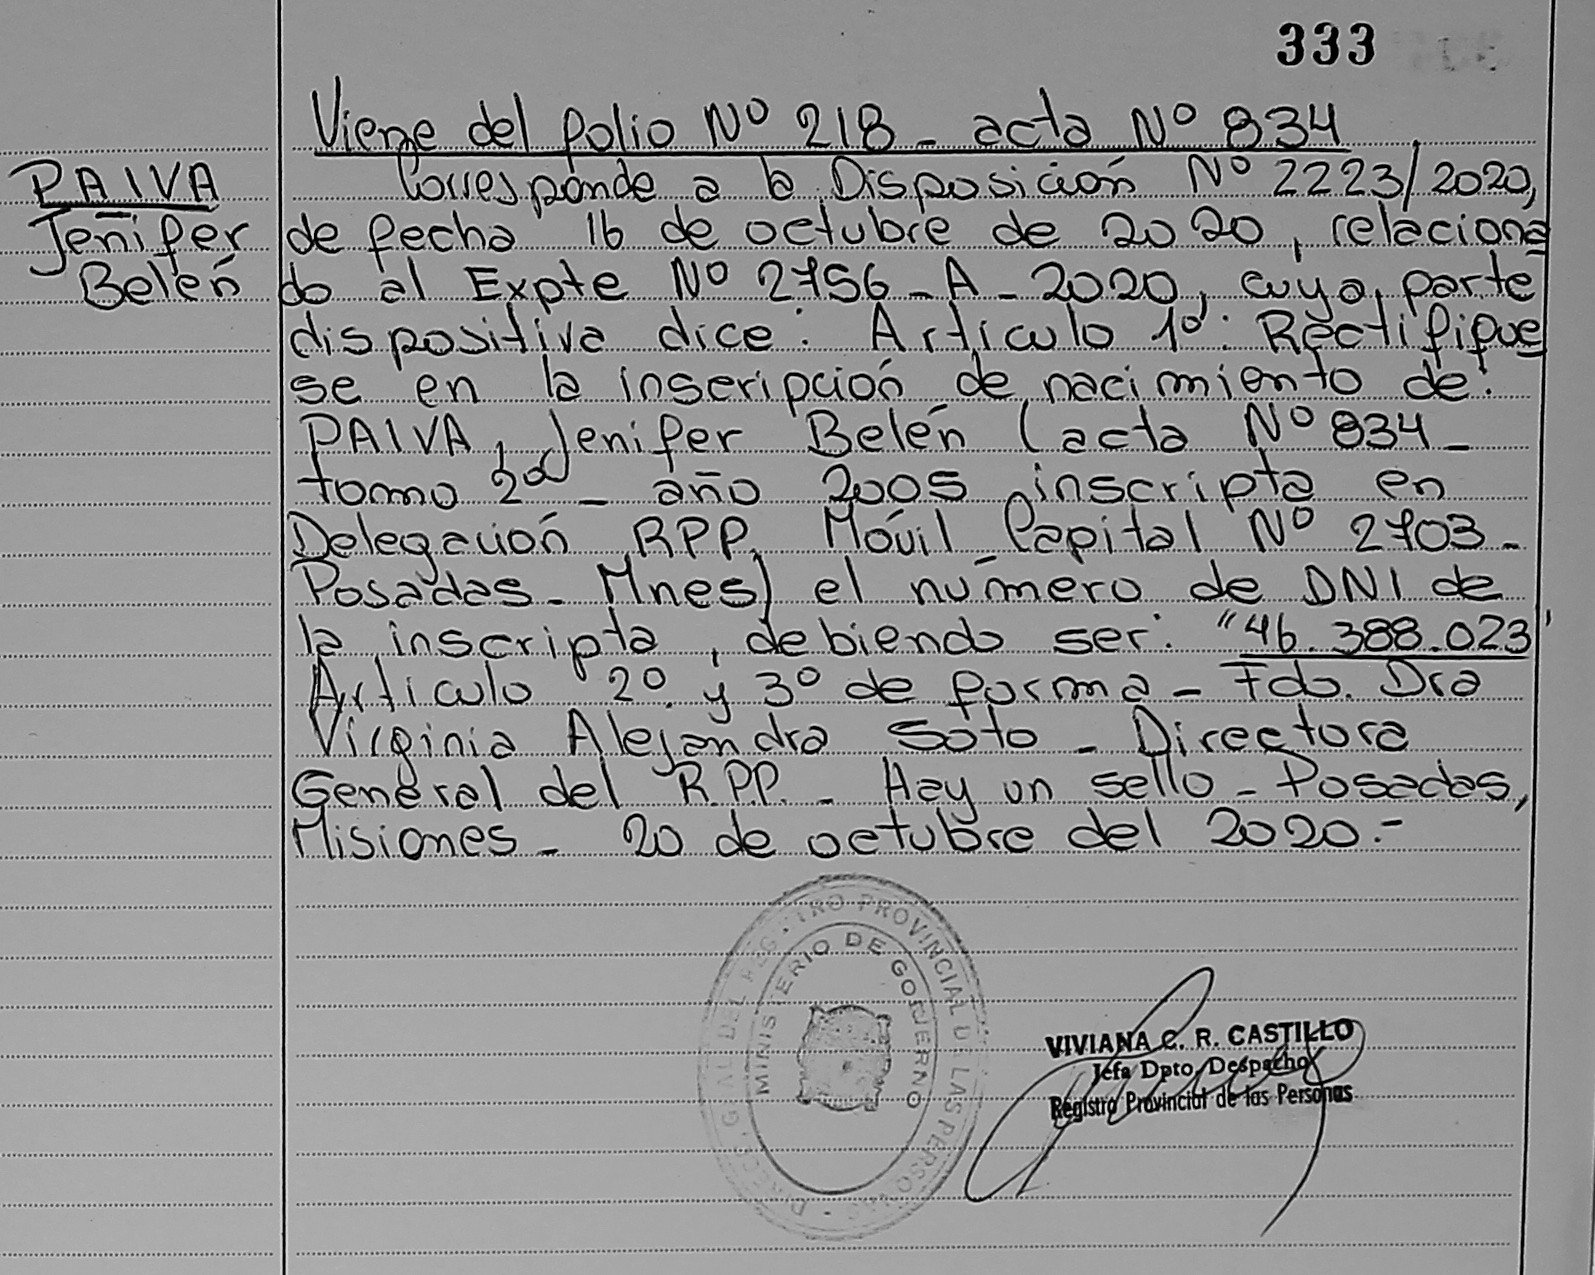 333
Viene del folio Nº 218 - acta Nº 834
PAIVA
Jenifer
Belén
Corresponde a la Disposición Nº 2223/2020,
de fecha 16 de octubre de 2020, relaciona
do al Expte Nº 2756-A-2020, cuya parte
dispositiva dice: Artículo 1º: Rectifique
se en la inscripción de nacimiento de:
PAIVA, Jenifer Belén (acta Nº 834-
tomo 2º - año 2005 inscripta en
Delegación RPP. Móvil Capital Nº 2703-
Posadas - Mnes) el número de DNI de
la inscripta, debiendo ser: "46.388.023"
Artículo 2º y 3º de forma - Fdo. Dra
Virginia Alejandra Soto - Directora
General del R.P.P. - Hay un sello - Posadas,
Misiones - 20 de octubre del 2020.-
MINISTERIO DE GOBIERNO
VIVIANA C. R. CASTILLO
Jefa Dpto. Despacho
Registro Provincial de las Personas